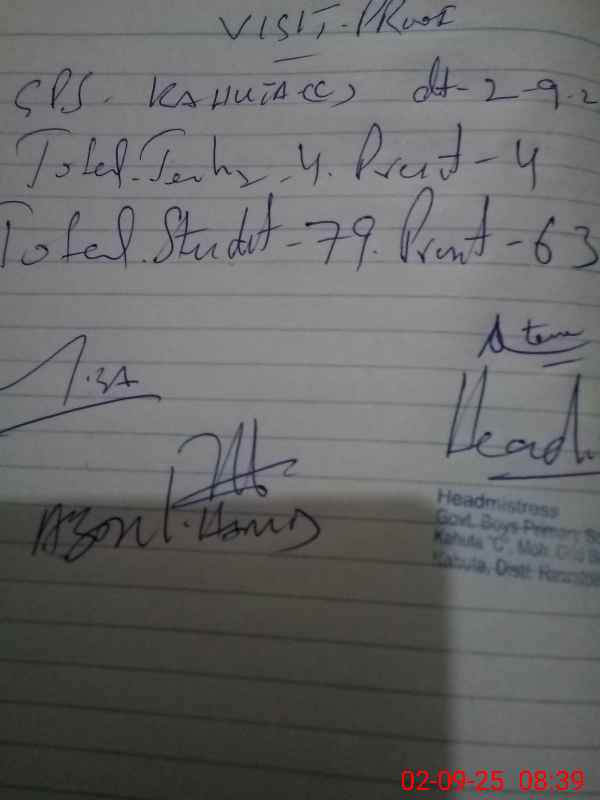 VISIT-PRooF
GPS. KAHUTA(C) dt-2-9-2
Total. Teachr-4. Present-4
Total. Studt-79. Present-63
Head
Headmistress
Govt. Boys Primary S
Kahuta "C", Moh.
Kahuta, Distt: Rawalp
02-09-25 08:39